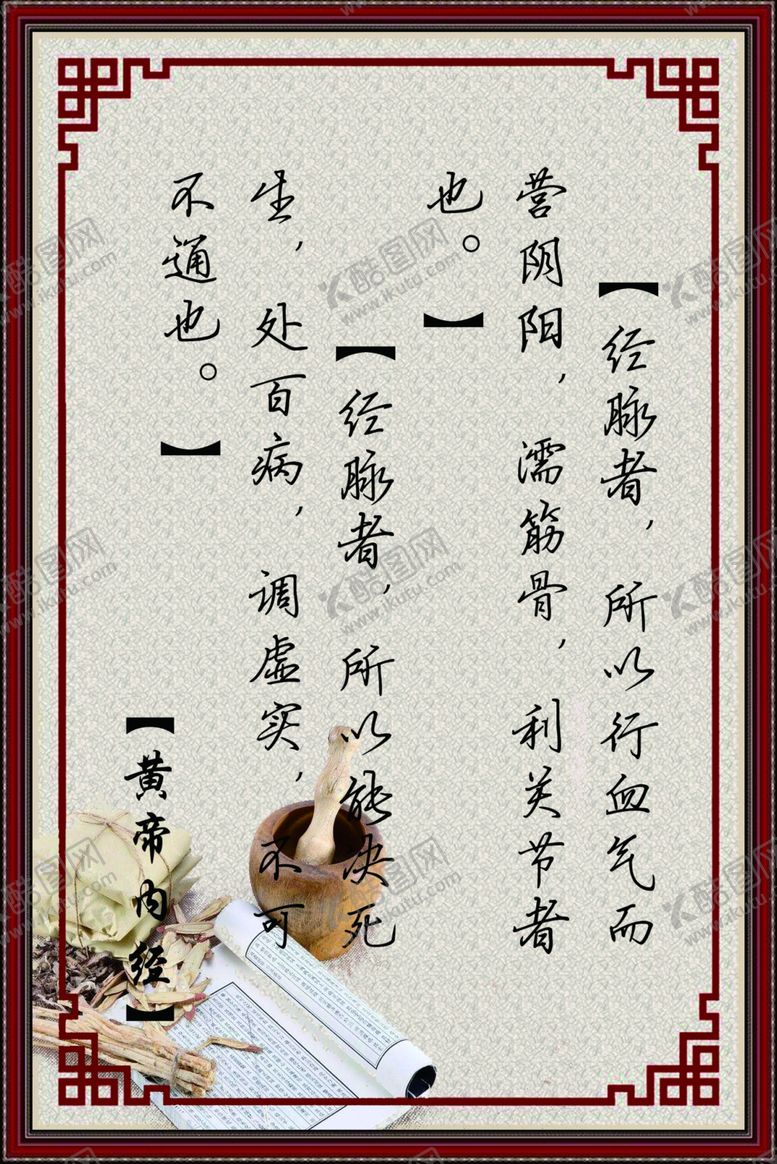 【经脉者，所以行血气而
营阴阳，濡筋骨，利关节者
也。】
【经脉者，所以能决死
生，处百病，调虚实，不可
不通也。】
【黄帝内经】
酷图网
www.ikutu.com